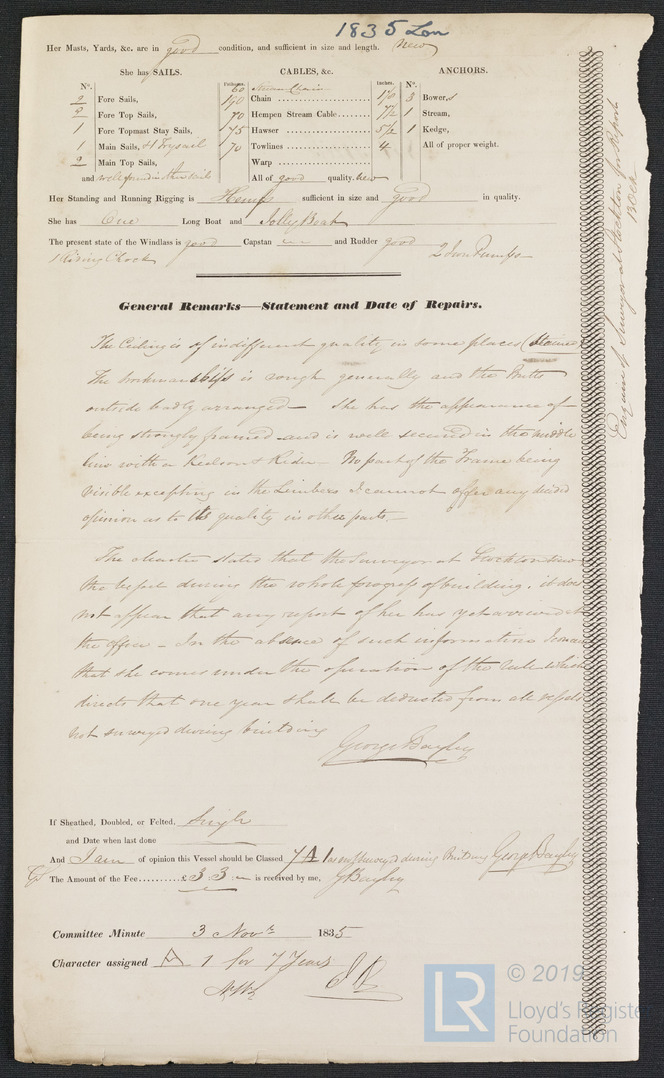 1835 Lon
Her Masts, Yards, &c. are in good condition, and sufficient in size and length. new
She has SAILS.
CABLES, &c.
ANCHORS.
N°.
Fathoms.
Inches.
N°.
60 Stream Chain
2 Fore Sails, 190 Chain 1 3 Bowers
2 Fore Top Sails, 70 Hempen Stream Cable 7½ 1 Stream,
1 Fore Topmast Stay Sails, 45 Hawser 5½ 1 Kedge,
1 Main Sails, & Trysail 70 Towlines 4 All of proper weight.
2 Main Top Sails, Warp
and well found in other sails All of good quality. new
Her Standing and Running Rigging is Hemp sufficient in size and Good in quality.
She has One Long Boat and Jolly Boat
The present state of the Windlass is good Capstan and Rudder good 2 Iron Pumps
1 Riding Chock
General Remarks—Statement and Date of Repairs.
The Ceiling is of indifferent quality in some places (Stained)
The workmanship is rough generally and the Butts
outside badly arranged - She has the appearance of
being strongly framed and is well secured in the middle
line with a Keelson & Rider - No part of the Frame being
visible excepting in the Limbers I cannot offer any decided
opinion as to the quality in other parts. -
The master states that the Surveyor at Stockton saw
the vessel during the whole progress of building. it does
not appear that any report of her has yet arrived at
the office - In the absence of such information
that she comes under the operation of the rule which
directs that one year shall be deducted from all vessels
not surveyed during building
George Bayley
If Sheathed, Doubled, or Felted, Single
and Date when last done
And I am of opinion this Vessel should be Classed 7 A 1 as unsurveyed during Building George Bayley
The Amount of the Fee £ 3 : 3 : - is received by me, G Bayley
Committee Minute 3 Novr 1835
Character assigned A 1 for 7 Years
Enquire of Surveyor at Stockton for Report
LR
© 2019
Lloyd's Register
Foundation